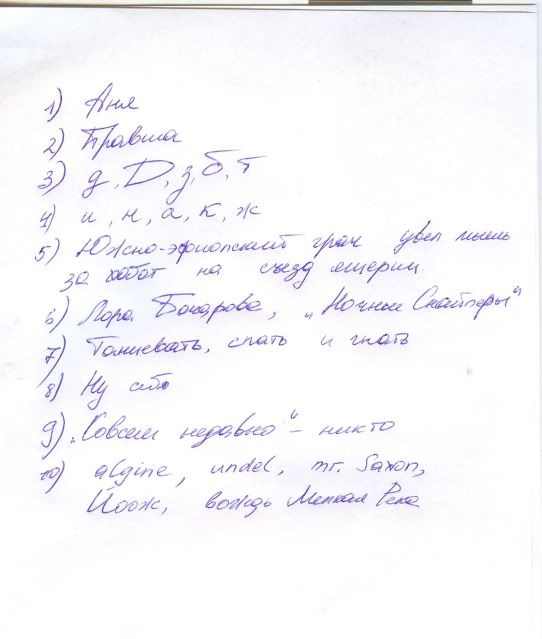 1) Аня
2) Правша
3) д, D, з, б, т
4) и, н, а, к, ж
5) Южно-эфиопский грач увел мышь
за хобот на съезд ящериц.
6) Лора Бочарова, „Ночные Снайперы"
7) Танцевать, спать и гнать
8) Ну
9) „Совсем недавно" – никто
10) algine, undel, mr. Saxon,
Йоож, вождь Мелкая Река